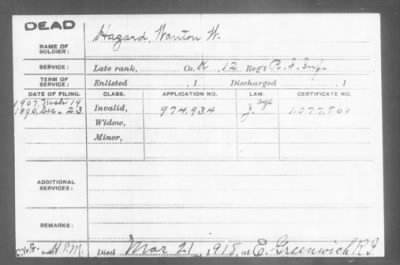 DEAD
NAME OF SOLDIER: Hazard, Wanton W.
SERVICE: Late rank, Co. K, 12 Reg't R. I. Inf.
TERM OF SERVICE: Enlisted , 1 Discharged , 1
DATE OF FILING. CLASS. APPLICATION NO. LAW. CERTIFICATE NO.
1907 19 age
1890, 23 Invalid, 974,934 1,077,
Widow,
Minor,
ADDITIONAL SERVICES:
REMARKS:
Died Mar 21, 1918, at E. Greenwich R I